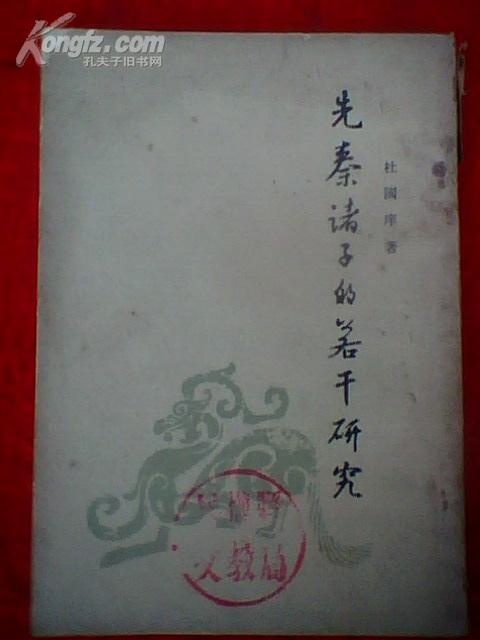 Kongfz.com
孔夫子旧书网
先秦诸子的若干研究
杜國庠著
文教局